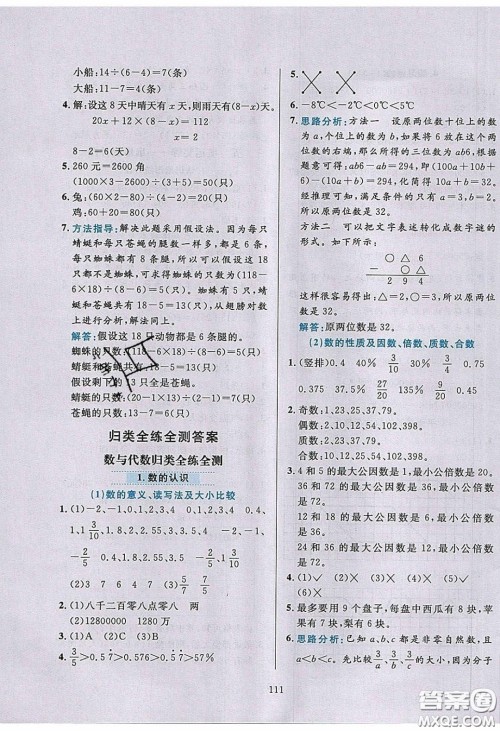 小船:14÷(6-4)=7(条)
大船:11-7=4(条)
4. 解:设这8天中晴天有x天,则雨天有(8-x)天。
20x+12×(8-x)=112
x=2
8-2=6(天)
5. 260元=2600角
(1000×3-2600)÷(3+5)=50(只)
6. 兔:(60×2-80)÷(4-2)=20(只)
鸡:20+60=80(只)
7. 方法指导:解决此题采用假设法。因为每只
蜻蜓和每只苍蝇的腿数一样多,都是6条,
每只蜘蛛都有8条腿。所以可以假设这18
只动物都是6条腿的。蜘蛛有5只(118-6
×18)÷(8-6)=5(只)
蜻蜓和苍蝇共有18-5=13(只),从翅膀对数
上进行分析,解法同上。
解答:假设这18只动物都是6条腿的。
蜘蛛的只数:(118-6×18)÷(8-6)=5(只)
蜻蜓和苍蝇共有18-5=13(只)
假设剩下的13只全是苍蝇。
蜻蜓的只数:(20-1×13)÷(2-1)=7(只)
苍蝇的只数:13-7=6(只)
归类全练全测答案
数与代数归类全练全测
1.数的认识
(1)数的意义、读写法及大小比较
2. (1)八千二百零八点零八 两
(2)80012000 1280万
3. (1)A (2)D (3)C
5.
6. -8℃<-2℃<0℃<5℃
7. 思路分析:方法一 设原两位数十位上的数
为a,个位上的数为b,如果将6放在这个两
位数的右端,那么所得的三位数是ab6,根据
题意可得:ab6-ab=294,将其变形为
(100a+10b+6)-(10a+b)=294,
经推理可知,满足条件的只有当a=3,b=2
时,所以原两位数是32。
方法二 可以把文字表述转化成数字谜的形
式。如下所示:
○△6
- ○△
294
这样很容易得出:○=3,△=2。
所以原两位数是32。
解答:原两位数是32。
(2)数的性质及因数、倍数、质数、合数
2. 奇数:1,23,25,37,79。
偶数:2,4,20,36,38。
质数:2,23,37,79。
合数:4,20,25,36,38。
3. 4和5的最大公因数是1,最小公倍数是20。
10和30的最大公因数是10,最小公倍数是
30。
24和36的最大公因数是12,最小公倍数是
72。
12和18的最大公因数是6,最小公倍数是
36。
4. (1)✓ (2)× (3)× (4)✓
(5)✓ (6)×
5. 最多要用9个盘子,每盘中西瓜有8块,
苹果有7块,梨有6块。
6. 思路分析:已知a、b、c都是非零自然数,且
a<b<c。
111
答案圈
MXQE.COM